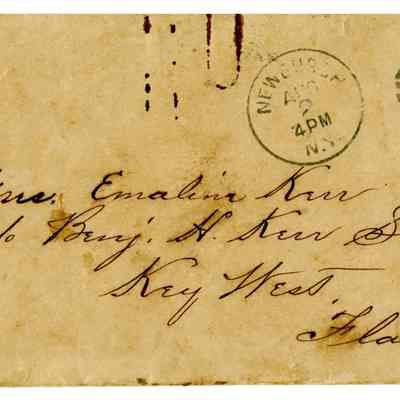 NEWBURGH
AUG
2
4PM
N.Y.
Mrs. Emaline Kerr
c/o Benj. H. Kerr S
Key West,
Fla